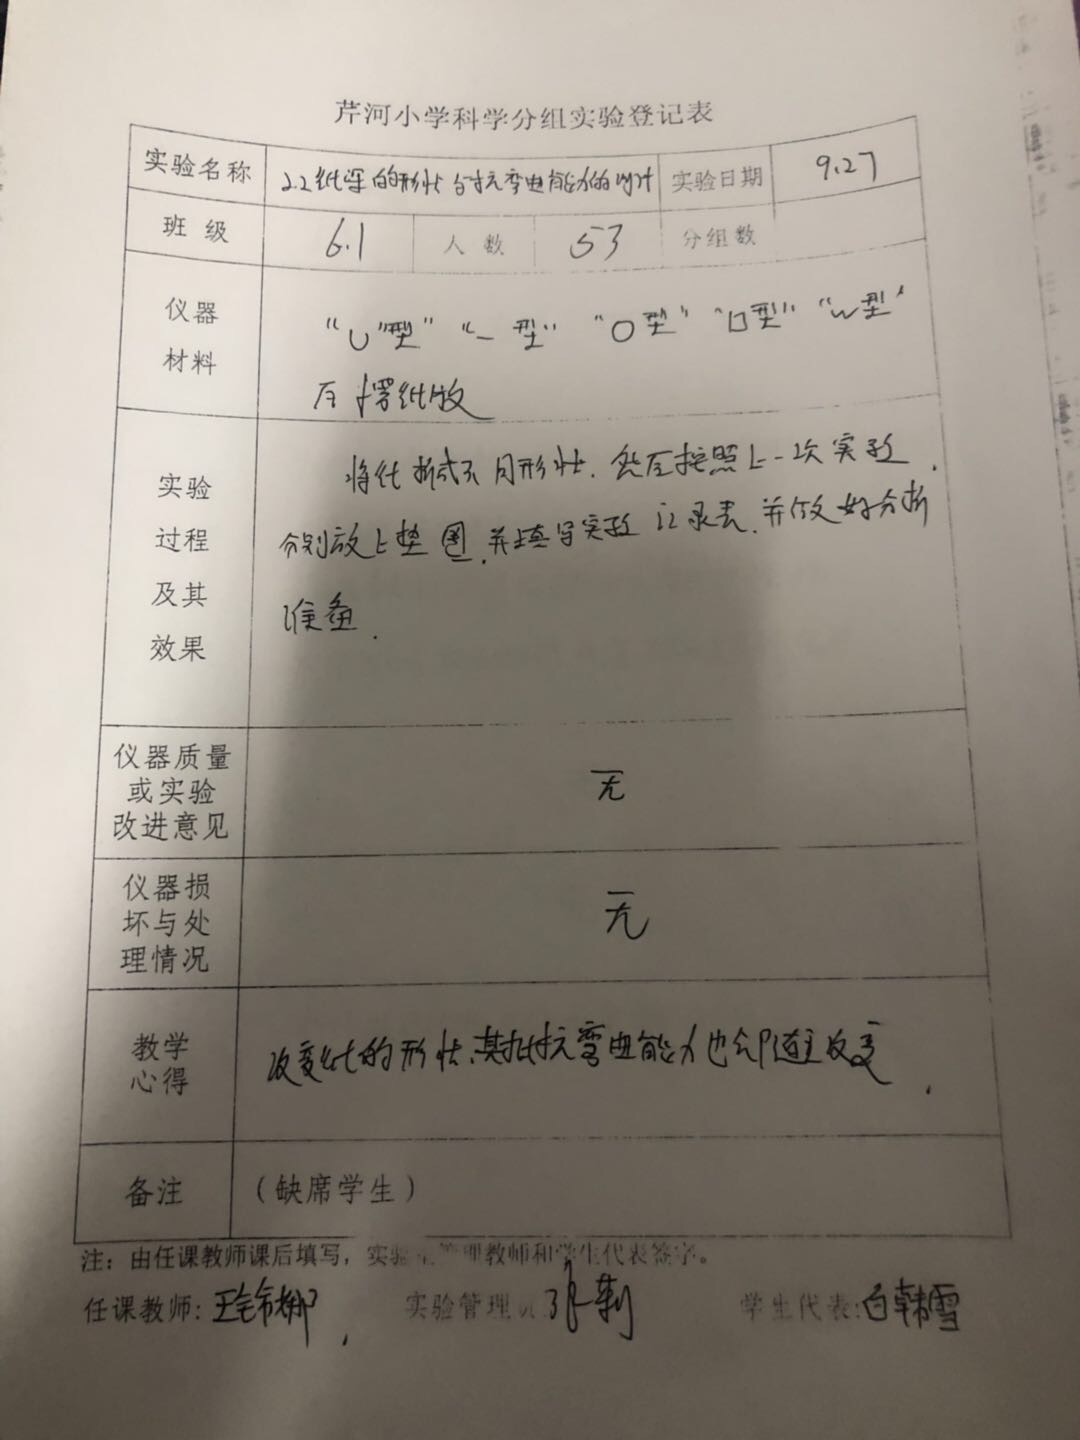 芹河小学科学分组实验登记表
实验名称 2.2纸梁的形状与抗弯曲能力的 实验日期 9.27
班级 6.1 人数 53 分组数
仪器材料 “U”型” “一型” “O型” “口型” “W型”
纸板
实验过程及其效果 将纸折成不同形状，然后按照上一次实验，
分别放上垫圈，并填写实验记录表，并做好分析
准备．
仪器质量或实验改进意见 无
仪器损坏与处理情况 无
教学心得 改变纸的形状，其抗弯曲能力也会随之改变．
备注 （缺席学生）
注：由任课教师课后填写，实验室管理教师和学生代表签字。
任课教师： 实验管理员： 学生代表：白韩雪